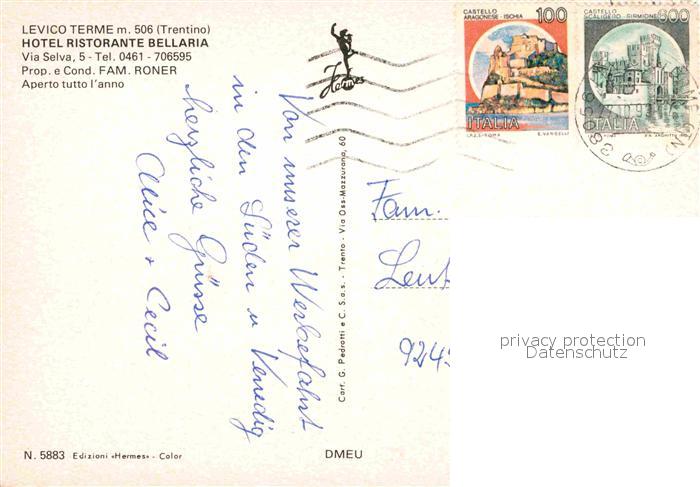 LEVICO TERME m. 506 (Trentino)
HOTEL RISTORANTE BELLARIA
Via Selva, 5 - Tel. 0461 - 706595
Prop. e Cond. FAM. RONER
Aperto tutto l'anno
Hermes
CASTELLO
ARAGONESE - ISCHIA
100
ITALIA
I.P.Z.S. - ROMA
E. VANGELLI
CASTELLO
SCALIGERO - SIRMIONE
600
ITALIA
38056
Von unserer Werbefahrt
in den Süden u Venedig
herzliche Grüsse
Alice + Cecil
Cart. G. Pedrotti e C. S.a.s. - Trento - Via Oss-Mazzurana, 60
Fam.
privacy protection
Datenschutz
N. 5883 Edizioni «Hermes» - Color
DMEU